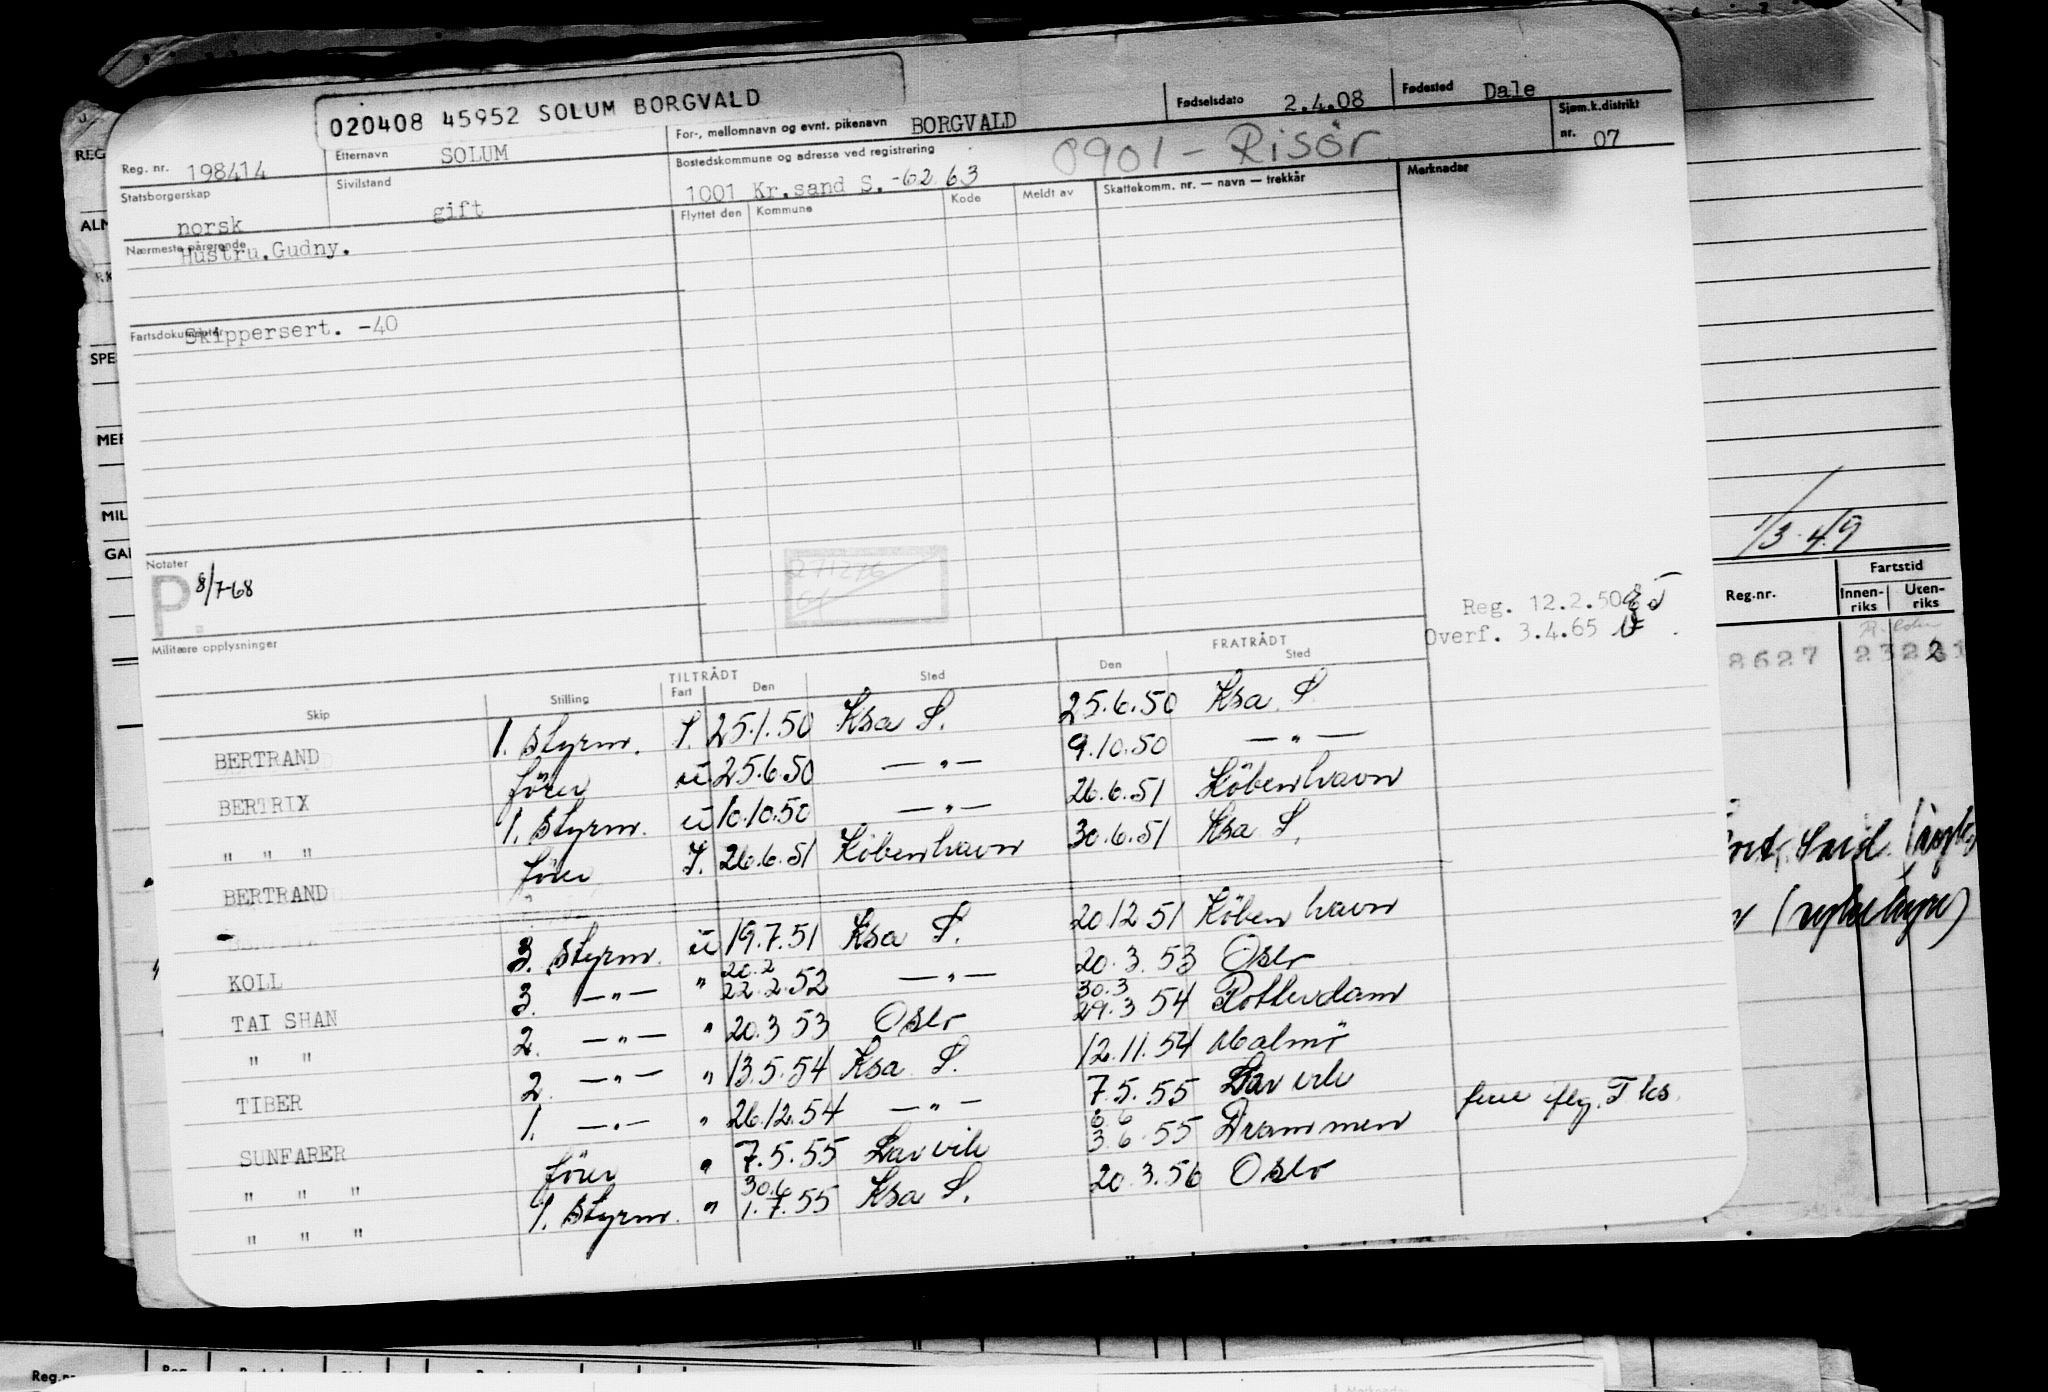 020408 45952 SOLUM BORGVALD
Reg. nr. 198414
Etternavn SOLUM
For-, mellomnavn og evnt. pikenavn BORGVALD
Fødselsdato 2.4.08
Fødested Dale
Statsborgerskap norsk
Sivilstand gift
Bostedskommune og adresse ved registrering 0901 - Risör
1001 Kr.sand S. -62 63
Sjøm.k.distrikt nr. 07
Nærmeste pårørende Hustru.Gudny.
Flyttet den Kommune Kode Meldt av Skattekomm. nr. — navn — trekkår Merknader
Fartsdokumenter Skippersert. -40
Notater
P. 8/7-68
Reg. 12.2.50
Overf. 3.4.65
Militære opplysninger
TILTRÅDT FRATRÅDT
Skip Stilling Fart Den Sted Den Sted
BERTRAND 1. styrm. I. 25.1.50 Ksa S. 25.6.50 Ksa S
BERTRIX förer u 25.6.50 — " — 9.10.50 — " —
" " " 1. styrm. u 10.10.50 — " — 26.6.51 Köbenhavn
BERTRAND förer I. 26.6.51 Köbenhavn 30.6.51 Ksa S.
KOLL 3. styrm. u 19.7.51 Ksa S. 20 12 51 Köbenhavn
TAI SHAN 3. — " — " 20.2 22.2.52 — " — 20.3.53 Oslo
" " 2. — " — " 20.3 53 Oslo 30.3 29.3 54 Rotterdam
TIBER 2. — " — " 13.5.54 Ksa S. 12.11.54 Malmö
SUNFARER 1. — " — " 26.12.54 — " — 7.5.55 Larvik
" " " förer " 7.5.55 Larvik 6.6 3.6.55 Drammen
" " " 1. styrm. " 30.6 1.7.55 Ksa S. 20.3.56 Oslo
REG
ALM
SPE
MER
MIL
GAR
1/3-49
Reg.nr. Fartstid
Innen-riks Uten-riks
8627
Reg.nr.